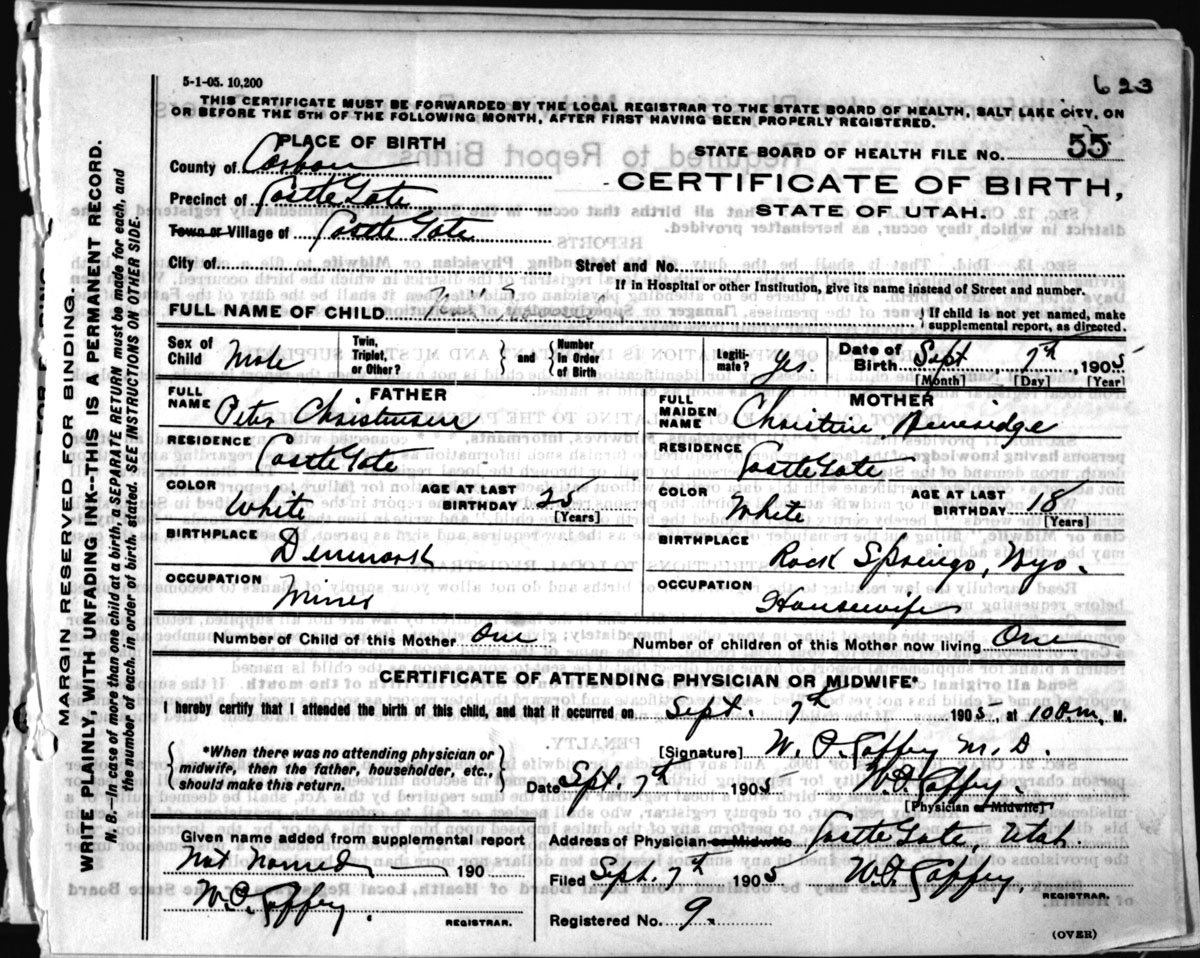 5-1-05. 10,200
623
THIS CERTIFICATE MUST BE FORWARDED BY THE LOCAL REGISTRAR TO THE STATE BOARD OF HEALTH, SALT LAKE CITY, ON
OR BEFORE THE 5TH OF THE FOLLOWING MONTH, AFTER FIRST HAVING BEEN PROPERLY REGISTERED.
PLACE OF BIRTH
STATE BOARD OF HEALTH FILE NO. 55
County of Carbon
CERTIFICATE OF BIRTH,
Precinct of Castle Gate
STATE OF UTAH.
Town or Village of Castle Gate
City of
Street and No.
If in Hospital or other Institution, give its name instead of Street and number.
FULL NAME OF CHILD
{If child is not yet named, make
supplemental report, as directed.
Sex of Child Male
Twin, Triplet, or Other? } and { Number In Order of Birth
Legiti-mate? yes.
Date of Birth Sept 7th, 1905
[Month] [Day] [Year]
FATHER
FULL NAME Peter Christensen
RESIDENCE Castle Gate
COLOR White
AGE AT LAST BIRTHDAY 25
[Years]
BIRTHPLACE Denmark
OCCUPATION Miner
MOTHER
FULL MAIDEN NAME Christine Beveridge
RESIDENCE Castle Gate
COLOR White
AGE AT LAST BIRTHDAY 18
[Years]
BIRTHPLACE Rock Springs, Wyo.
OCCUPATION Housewife
Number of Child of this Mother One
Number of children of this Mother now living One
CERTIFICATE OF ATTENDING PHYSICIAN OR MIDWIFE*
I hereby certify that I attended the birth of this child, and that it occurred on Sept. 7th 1905 at M.
{*When there was no attending physician or
midwife, then the father, householder, etc.,
should make this return.}
[Signature] W. P. Gaffey M.D.
Date Spt. 7th 1905 W. P. Gaffey.
[Physician or Midwife]
Given name added from supplemental report
Not Named 190
W. P. Gaffey.
REGISTRAR.
Address of Physician or Midwife Castle Gate, Utah.
Filed Sept. 7th 1905 W. P. Gaffey,
REGISTRAR.
Registered No. 9.
(OVER)
MARGIN RESERVED FOR BINDING.
WRITE PLAINLY, WITH UNFADING INK--THIS IS A PERMANENT RECORD.
N. B.--In case of more than one child at a birth, a SEPARATE RETURN must be made for each, and
the number of each, in order of birth, stated. SEE INSTRUCTIONS ON OTHER SIDE.